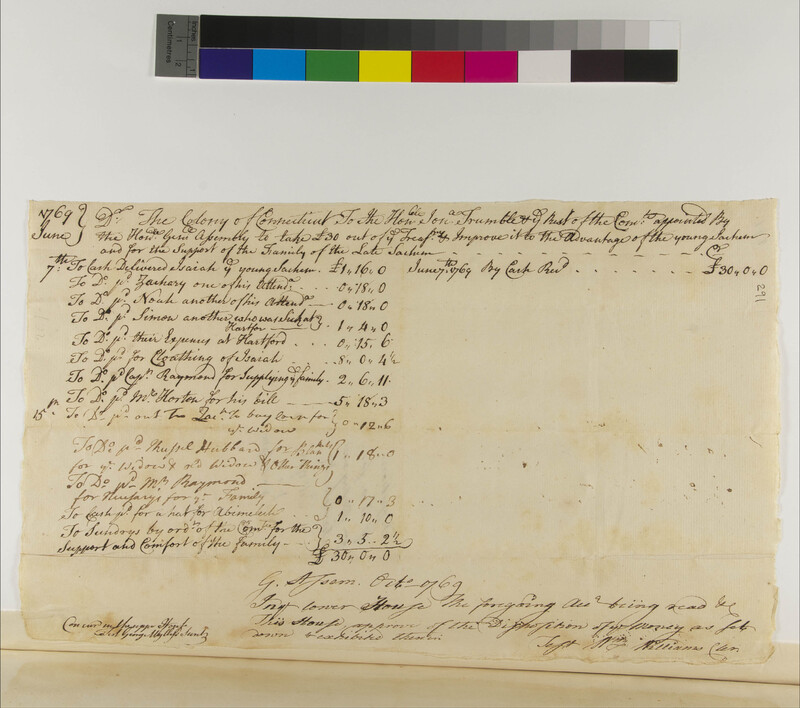 Centimetres
Inches
1769
June
Dr. The Colony of Connecticut To the Honble Jona Trumble & ye Rest of the Comtt appointed By
the Honle Genl Assembly to take £30 out of ye Treasy & Improve it to the Advantage of the young Sachem
and for the Support of the Family of the Late Sachem
Cr
7th To Cash Delivered Isaiah ye young Sachem. £1„16„0 June 7th 1769 By Cash Recd £30„0„0
To Do pd Zachery one of his Attends 0„18„0
To Do pd Noah another of his Attends 0„18„0
To Do pd Simon another who was Sick at
Hartford 1„4„0
To Do pd their Expences at Hartford 0„15„6
To Do pd for Cloathing of Isaiah 8„0„4½
To Do pd Capt Raymond for Supplying ye family 2„6„11
To Do pd Mr Horton for his bill 5„18„3
15th To Do pd out to Zacr to buy corn for
ye Widow 0„12„6
To Do pd Russel Hubbard for
for ye Widow & old Widow & Other Things 1„18„0
To Do pd Mr Raymond
for Nursarys for ye Family 0„17„3
To Cash pd for a hat for Abimeleck 1„10„0
To Sundrys by ordr of the Comtt for the
Support and Comfort of the family 3„5„2½
£30„0„0
291
G. Assem. Octo 1769
In ye lower House The foregoing Acct being read &c
This House approve of the Disposition of ye Money as set
down & exhibited therein
Test Wm Williams Cler
Concurd in ye upper House
Test George Wyllys Secretz